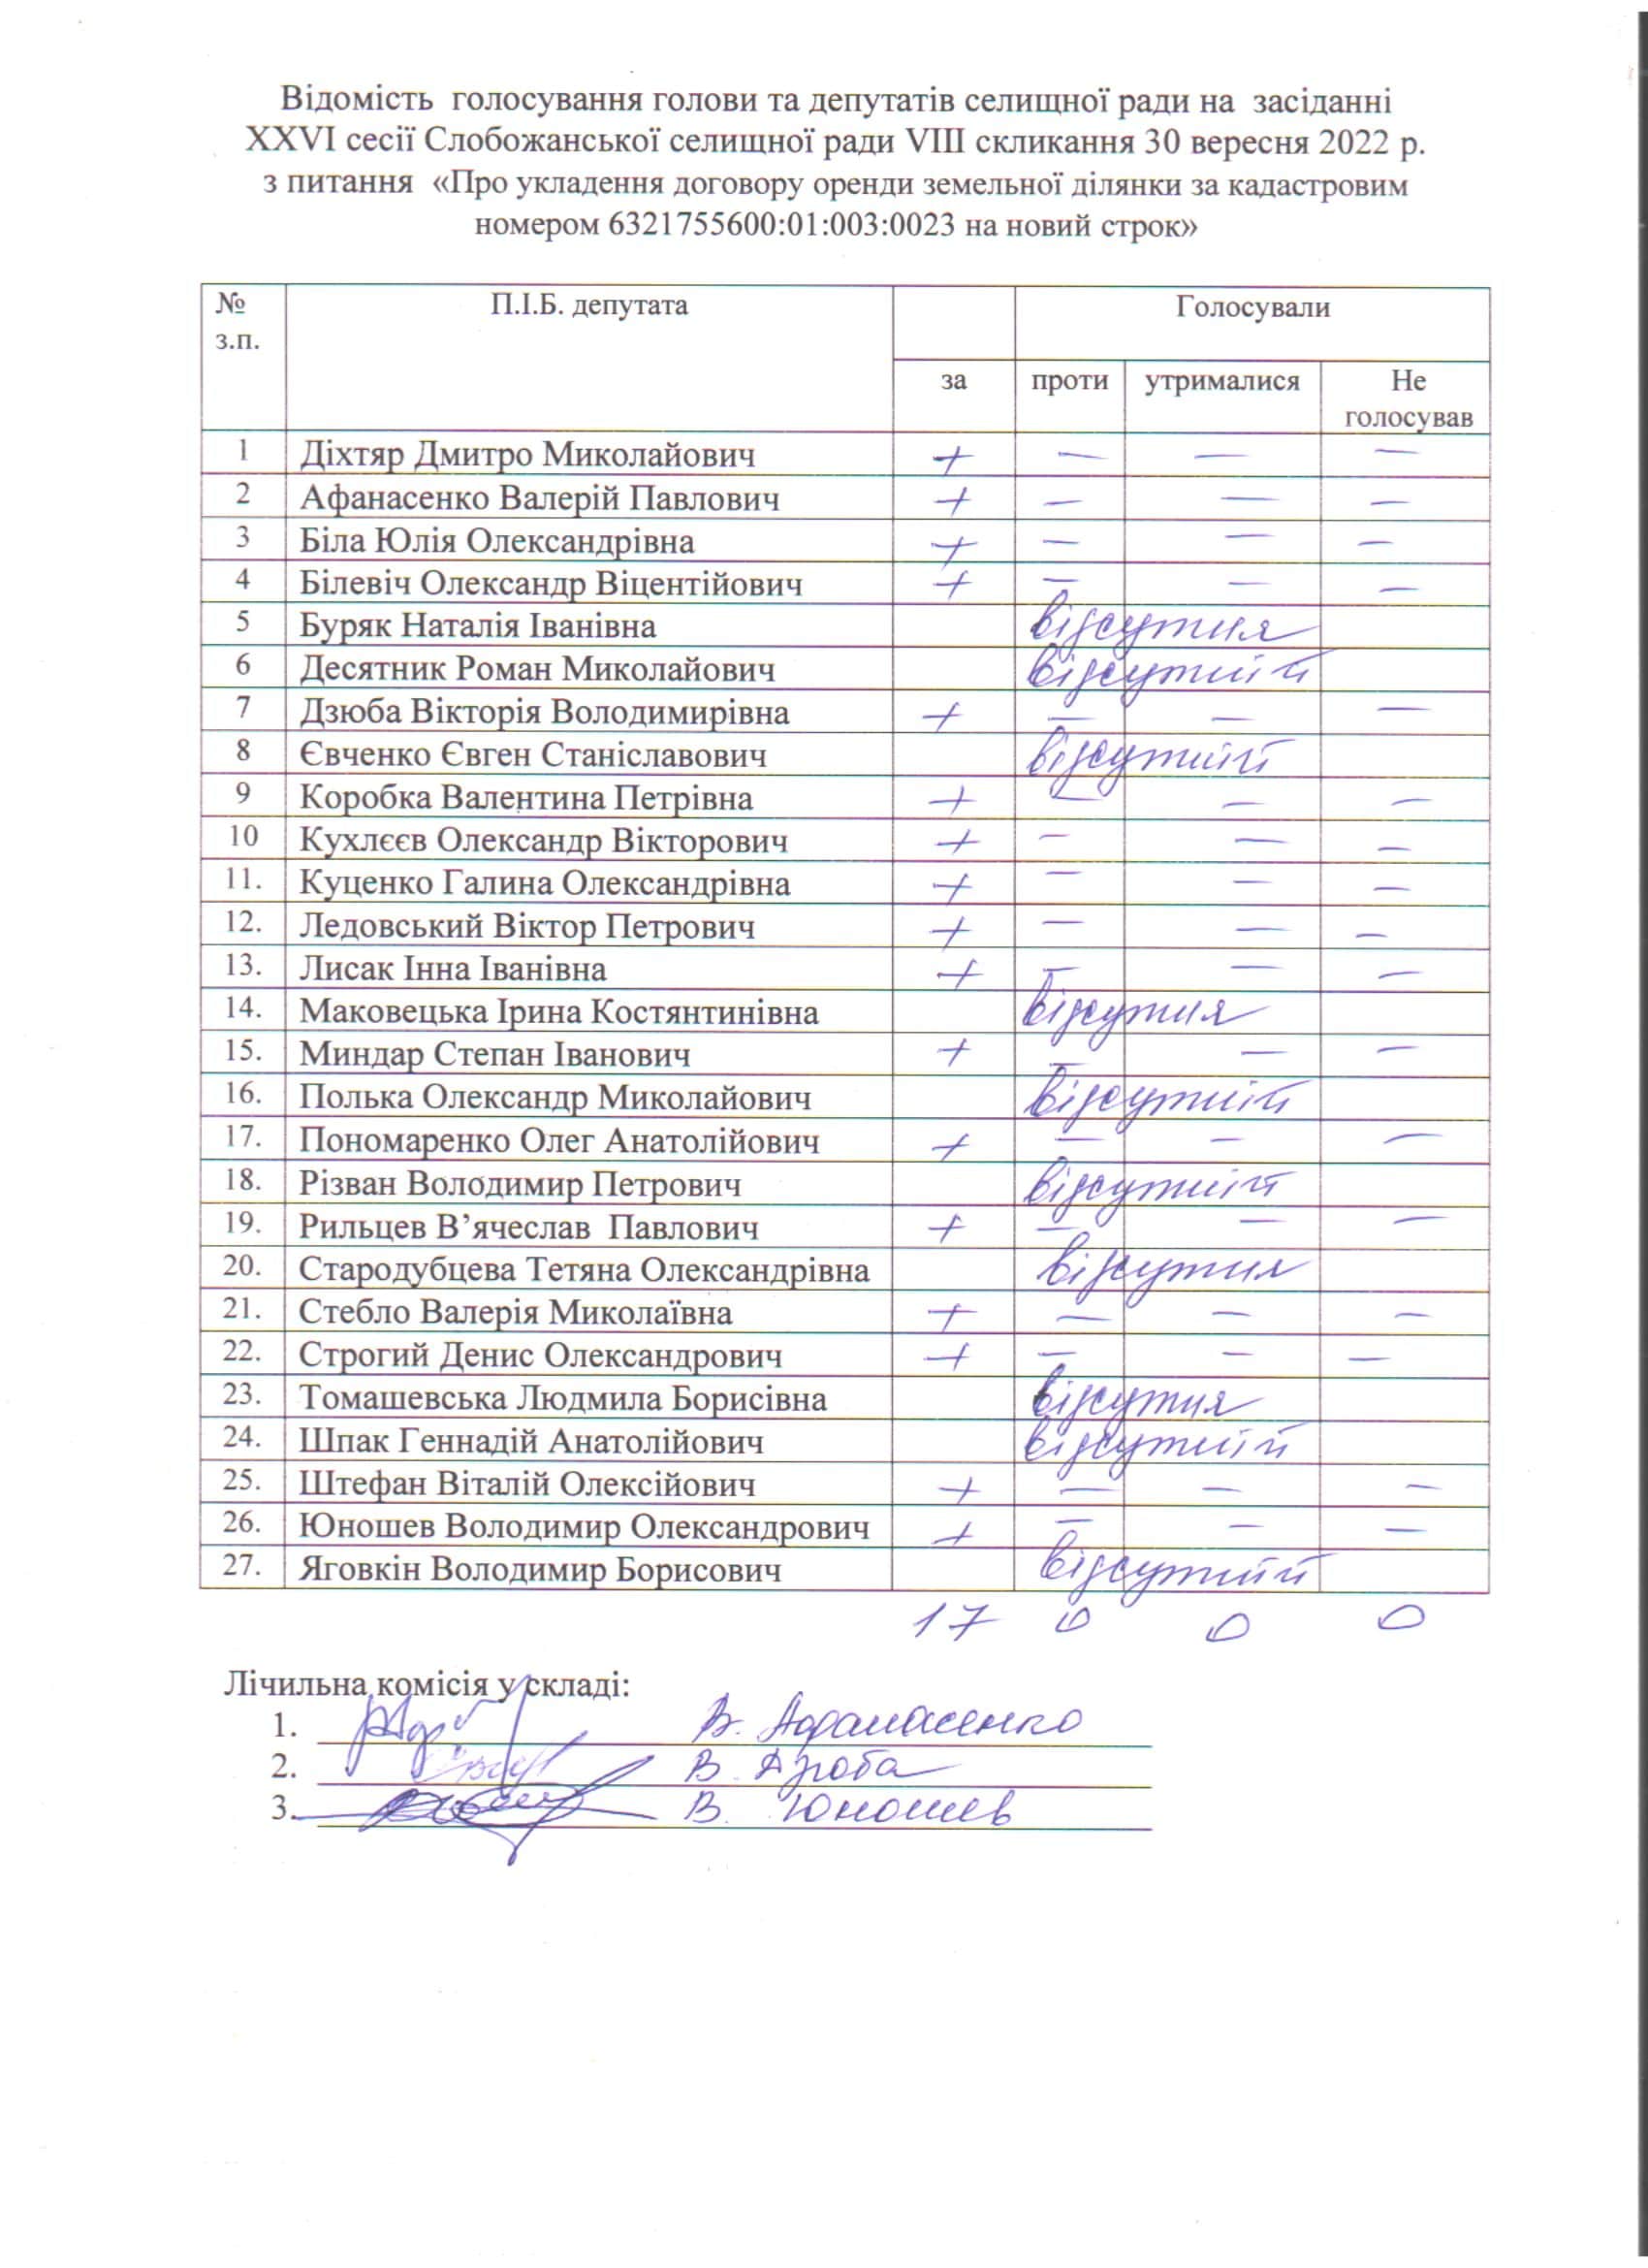 Відомість голосування голови та депутатів селищної ради на засіданні
XXVI сесії Слобожанської селищної ради VIII скликання 30 вересня 2022 р.
з питання «Про укладення договору оренди земельної ділянки за кадастровим
номером 6321755600:01:003:0023 на новий строк»
№ з.п. П.І.Б. депутата Голосували
за проти утрималися Не голосував
1 Діхтяр Дмитро Миколайович + — — —
2 Афанасенко Валерій Павлович + — — —
3 Біла Юлія Олександрівна + — — —
4 Білевіч Олександр Віцентійович + — — —
5 Буряк Наталія Іванівна відсутня
6 Десятник Роман Миколайович відсутній
7 Дзюба Вікторія Володимирівна + — — —
8 Євченко Євген Станіславович відсутній
9 Коробка Валентина Петрівна + — — —
10 Кухлєєв Олександр Вікторович + — — —
11. Куценко Галина Олександрівна + — — —
12. Ледовський Віктор Петрович + — — —
13. Лисак Інна Іванівна + — — —
14. Маковецька Ірина Костянтинівна відсутня
15. Миндар Степан Іванович + — — —
16. Полька Олександр Миколайович відсутній
17. Пономаренко Олег Анатолійович + — — —
18. Різван Володимир Петрович відсутній
19. Рильцев В’ячеслав Павлович + — — —
20. Стародубцева Тетяна Олександрівна відсутня
21. Стебло Валерія Миколаївна + — — —
22. Строгий Денис Олександрович + — — —
23. Томашевська Людмила Борисівна відсутня
24. Шпак Геннадій Анатолійович відсутній
25. Штефан Віталій Олексійович + — — —
26. Юношев Володимир Олександрович + — — —
27. Яговкін Володимир Борисович відсутній
17 0 0 0
Лічильна комісія у складі:
1. В. Афанасенко
2. В. Дзюба
3. В. Юношев